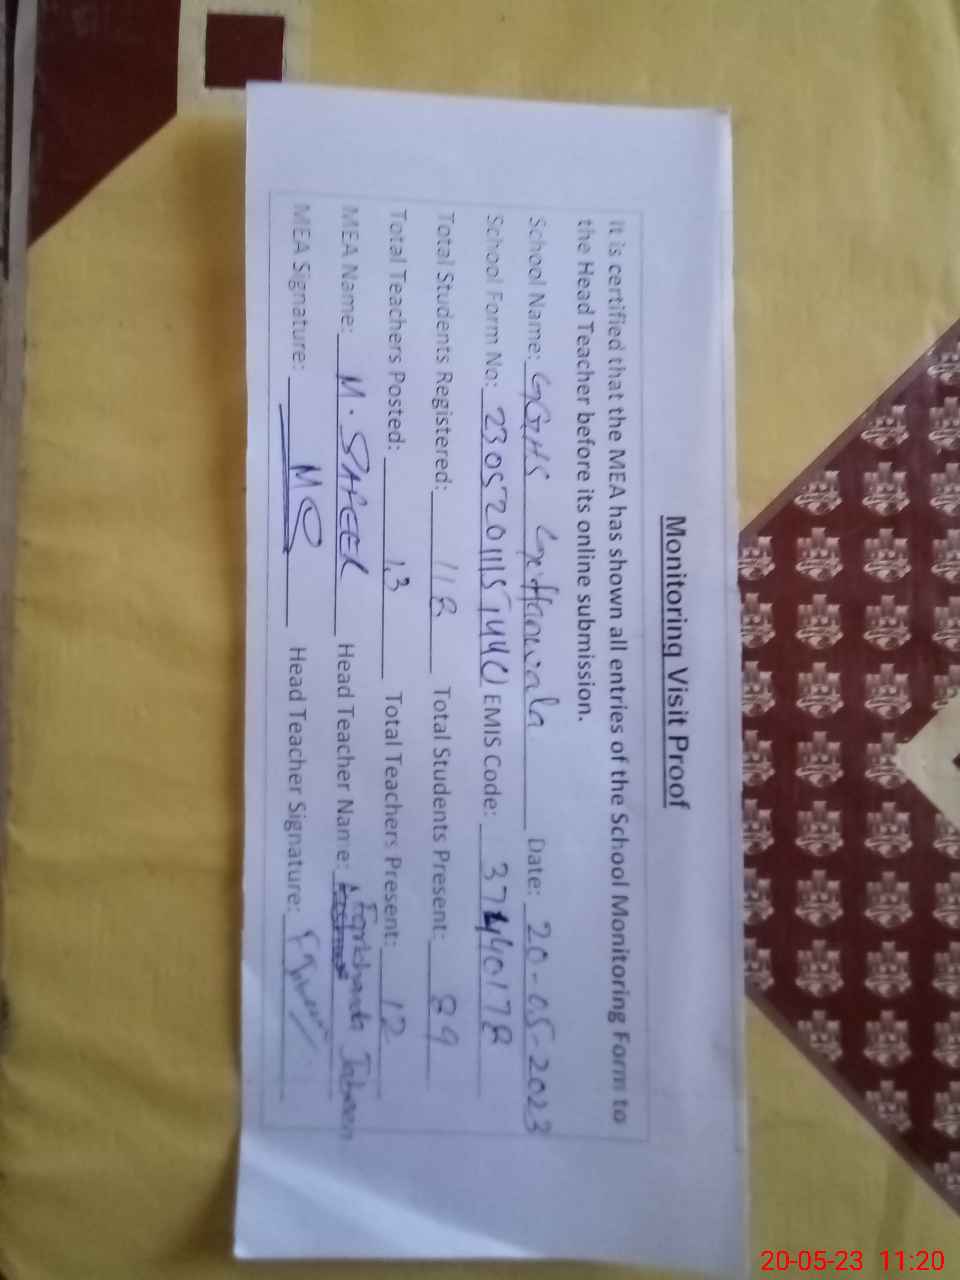 Monitoring Visit Proof
It is certified that the MEA has shown all entries of the School Monitoring Form to
the Head Teacher before its online submission.
School Name: GGHS Date: 20-05-2023
School Form No: EMIS Code:
Total Students Registered: 118 Total Students Present: 89
Total Teachers Posted: 13 Total Teachers Present: 12
MEA Name: M. Head Teacher Name: Jabeen
MEA Signature: Head Teacher Signature:
20-05-23 11:20